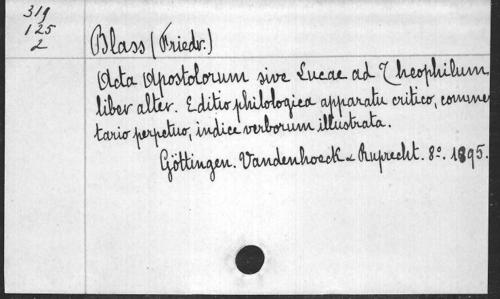 319
125
2
Blass (Friedr.)
Acta Apostolorum sive Lucae ad Theophilum
liber alter. Editio philologica apparatu critico, commen
tario perpetuo, indice verborum illustrata.
Göttingen. Vandenhoeck & Ruprecht. 8º. 1895.